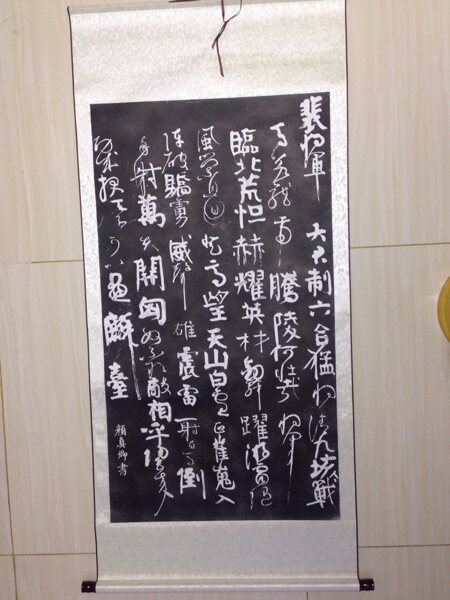 裴將軍 大君制六合猛將清九垓戰
馬若龍虎騰陵何壯哉將軍
臨北荒恒赫耀英材劍舞躍游電隨
風縈且迴登高望天山白雲正崔嵬入
陣破驕虜威聲雄震雷一射百馬倒
再射萬夫開匈奴不敢敵相呼歸去來
功成報天子可以畫麟臺
顏真卿書